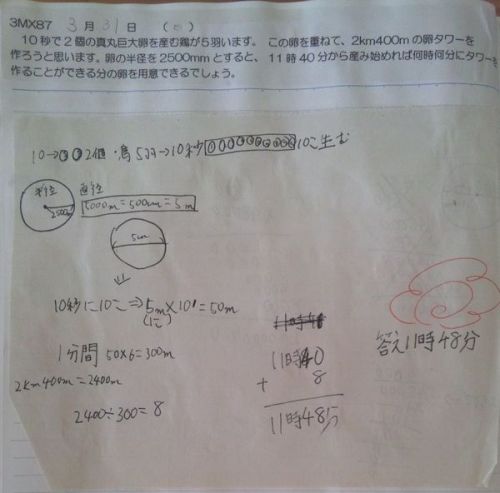 3MX87 3月31日 (○)
10秒で2個の真丸巨大卵を産む鶏が5羽います。 この卵を重ねて、2km400mの卵タワーを
作ろうと思います。卵の半径を2500mmとすると、11時40分から産み始めれば何時何分にタワーを
作ることができる分の卵を用意できるでしょう。
10→002個 5羽→10秒 0000000000 10こ生む
半径 直径
2500m 5000m=500cm=5m
5m
⇓
10秒に10こ⇒5m×10=50m
(1こ)
1分間 50×6=300m
2km400m=2400m
2400÷300=8
11時40
+ 8
11時48分
答え11時48分